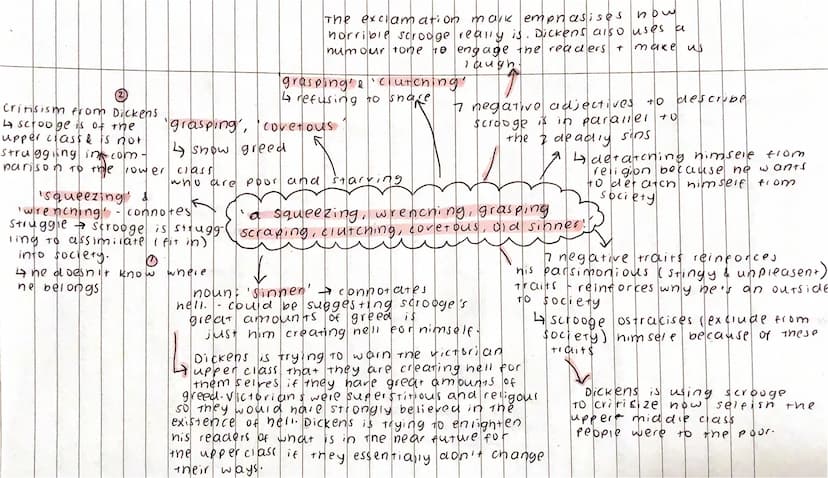 The exclamation mark emphasises how
horrible scrooge really is. Dickens also uses a
humour tone to engage the readers + make us
laugh.
grasping & 'clutching'
↳ refusing to share
7 negative adjectives to describe
scrooge is in parallel to
the 7 deadly sins
↳ detatching himself from
religion because he wants
to detatch himself from
society
②
critisism from Dickens
↳ scrooge is of the
upper class & is not
struggling in com-
parison to the lower class
who are poor and starving
'grasping', 'covetous'
↳ show greed
'squeezing' &
'wrenching' - connotes
struggle → scrooge is strugg
ling to assimilate (fit in)
into society. ①
↳ he doesn't know where
he belongs
'a squeezing, wrenching, grasping
scraping, clutching, covetous, old sinner!'
7 negative traits reinforces
his parsimonious (stingy & unpleasent)
traits - reinforces why he's an outside
to society
↳ scrooge ostracises (exclude from
society) himself because of these
traits
Dickens is using scrooge
to critisize how selfish the
upper middle class
people were to the poor.
noun: 'sinner' → connotates
hell. - could be suggesting scrooge's
great amounts of greed is
just him creating hell for himself.
Dickens is trying to warn the victorian
upper class that they are creating hell for
themselves if they have great amounts of
greed. Victorians were superstitious and religous
so they would have strongly believed in the
existence of hell. Dickens is trying to enlighten
his readers of what is in the near future for
the upper class if they essentially don't change
their ways.